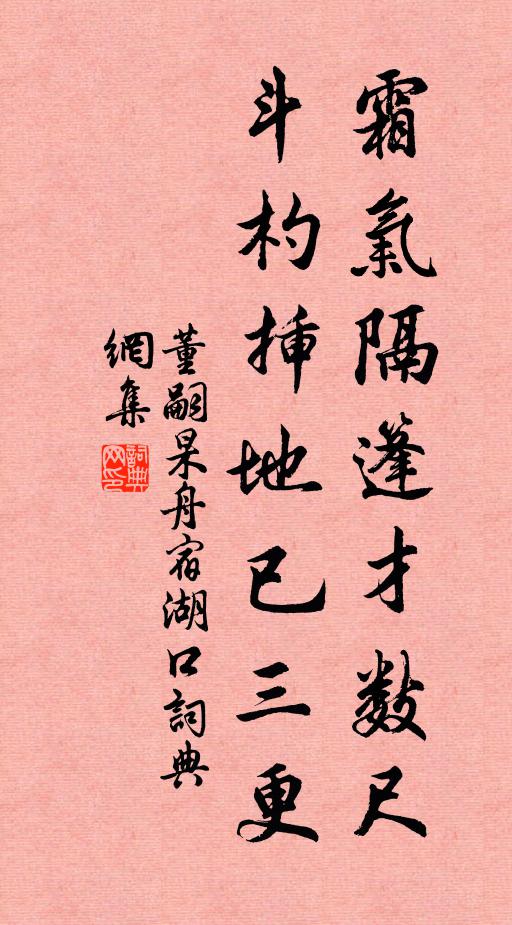 霜氣隔篷才數尺
斗杓揷地已三更
董嗣杲舟宿湖口詞典
網集
詞典網印